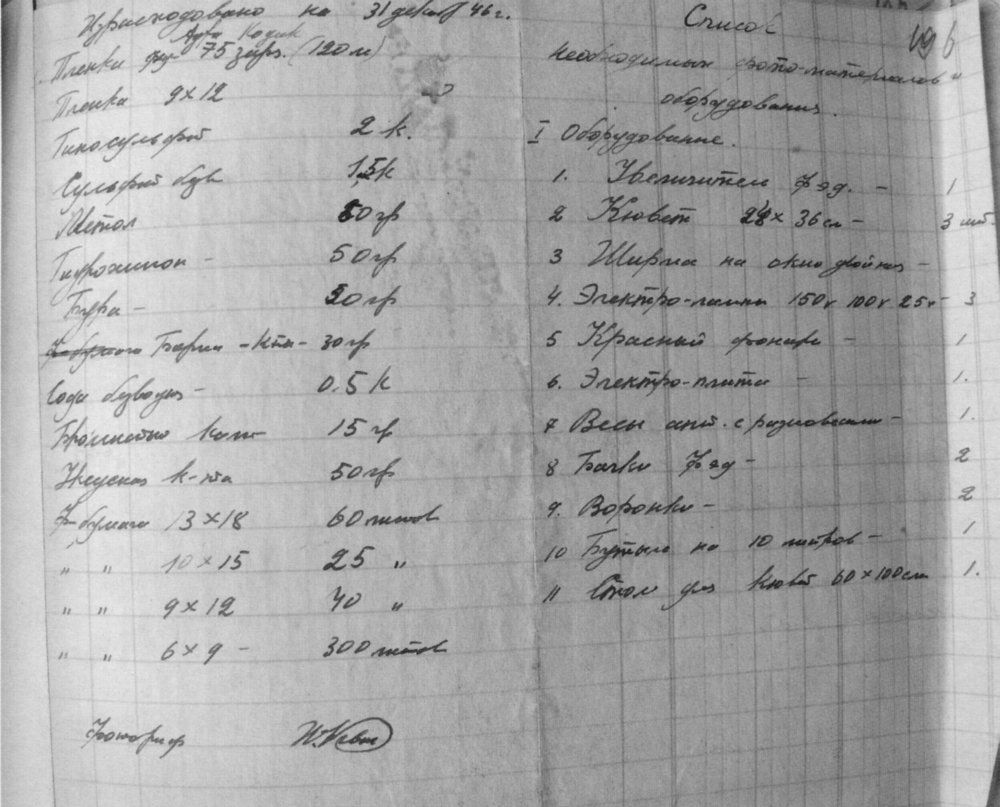 Израсходовано на 31 декаб 46 г.
Агфа Кодак
Пленки 75 заря. (120 м)
Пленка 9×12
Гипосульфит 2 к.
Сульфит безв 1,5 к
Метол 50 гр
Гидрохинон - 50 гр
Бура - 50 гр
Борная - К-та - 30 гр
Сода безводн - 0.5 к
Бромистый кали 15 гр
Уксусная к-та 50 гр
Ф-бумага 13×18 60 листов
" " 10×15 25 "
" " 9×12 40 "
" " 6×9 - 300 листов
Фотограф
196
Список
необходимых фото-материалов и
оборудования.
I Оборудование.
1. Увеличители Фэд. - 1
2 Кювет 28 × 36 см - 3 шт.
3 Ширма на окно двойная -
4. Электро-лампы 150v 100v 25v - 3
5 Красный фонарь - 1
6. Электро-плита - 1.
7 Весы апт. с разновесами - 1.
8 Бачки Фэд - 2
9. Воронки - 2
10 Бутыль на 10 литров - 1
11 Стол для кювет 60×100 см 1.